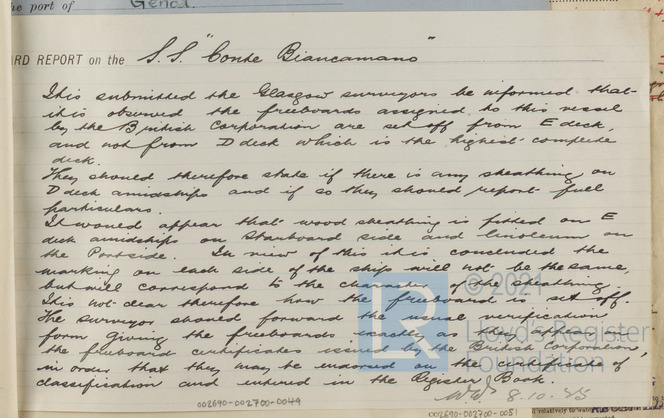 he port of Genoa.
RD REPORT on the S.S. "Conte Biancamano"
It is submitted the Glasgow surveyors be informed that
it is observed the freeboards assigned to this vessel
by the British Corporation are set off from E deck,
and not from D deck which is the highest complete
deck.
They should therefore state if there is any sheathing on
D deck amidships and if so they should report full
particulars.
It would appear that wood sheathing is fitted on E
deck amidships on Starboard side and linoleum on
the Portside. In view of this it is concluded the
marking on each side of the ship will not be the same,
but will correspond to the character of the sheathing.
It is not clear therefore how the freeboard is set off.
The surveyor should forward the usual verification
form giving the freeboards exactly as they appear on
the freeboard certificates issued by the British Corporation,
in order that they may be endorsed on the certificates of
classification and entered in the Register Book.
8.10.25
© 2021
LR
Lloyd's Register
Foundation
002690-002700-0049
002690-002700-0051